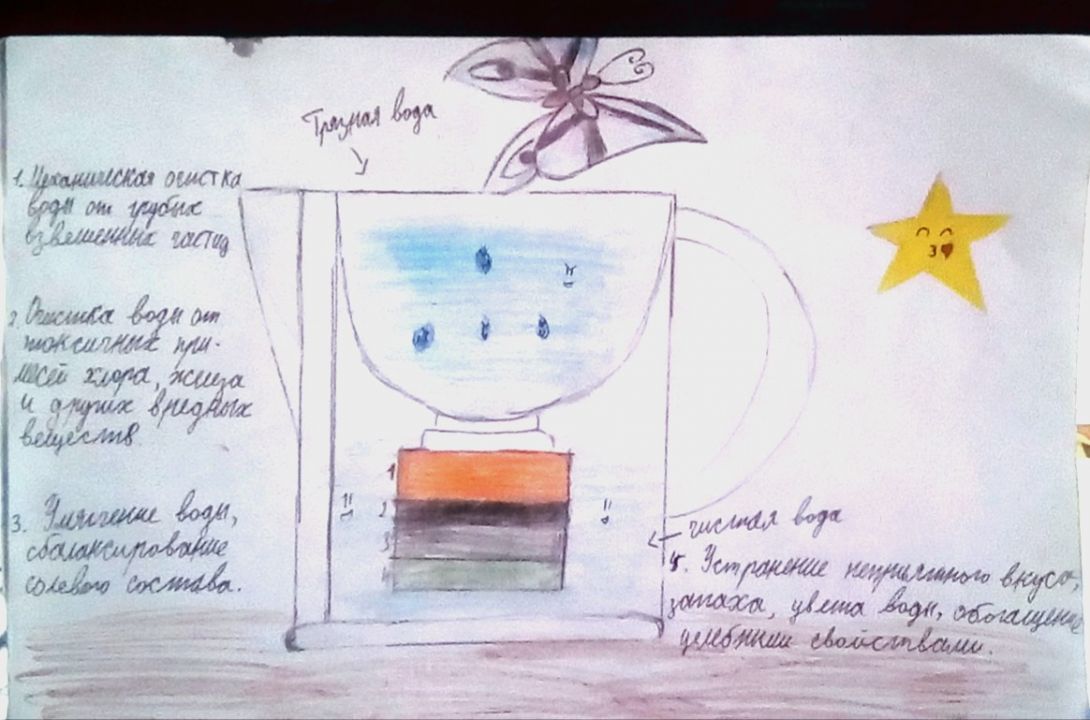 Грязная вода
1. Механическая очистка
воды от грубых
взвешенных частиц
2. Очистка воды от
токсичных при-
месей хлора, железа
и других вредных
веществ.
3. Умягчение воды,
сбалансирование
солевого состава.
1
2
3
4
чистая вода
4. Устранение неприятного вкуса,
запаха, цвета воды, обогащение
целебными свойствами.